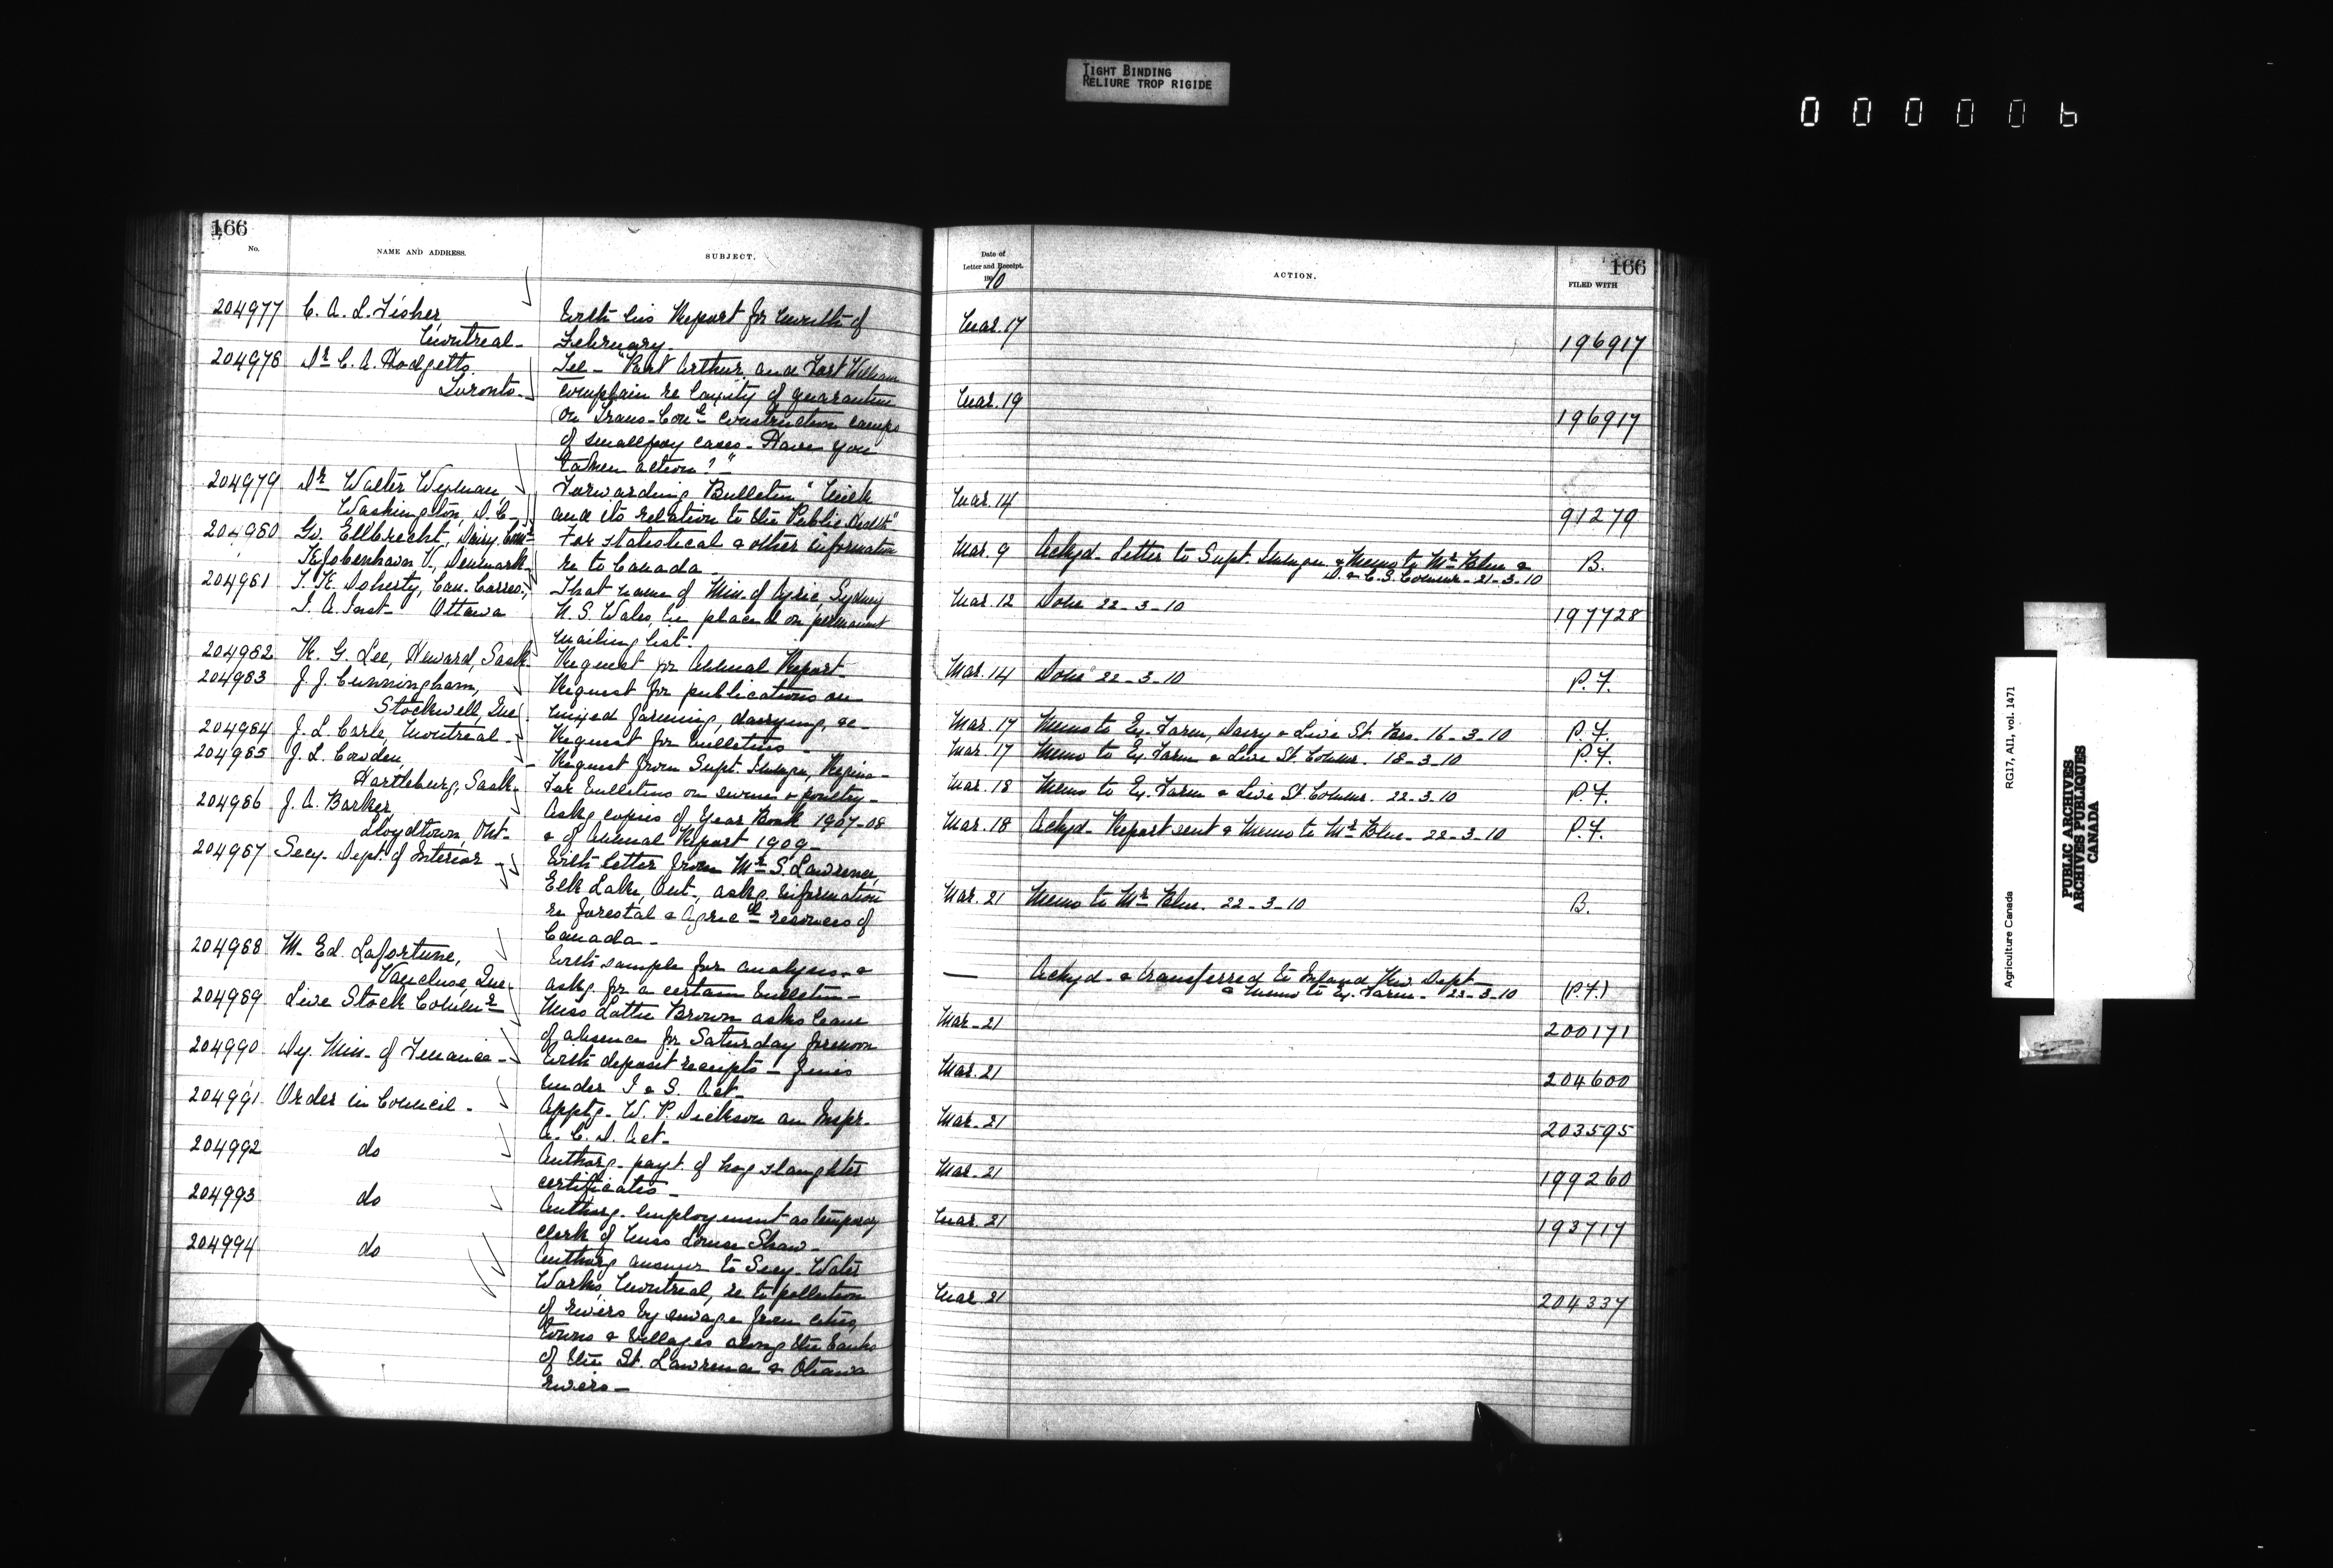 TIGHT BINDING
RELIURE TROP RIGIDE
000006
166
No.
NAME AND ADDRESS.
SUBJECT.
204977 C. A. L. Fisher
Montreal-
With his Report for month of
February.
204978 Dr C. A. Hodgetts.
Toronto-
Tel- "Port Arthur and Fort William
complain re laxity of quarantine
on Trans-Conl construction camps
of smallpox cases- Have you
taken action?"-
204979 Dr Walter Wyman,
Washington, D.C.-
Forwarding Bulletin "Milk
and its relation to the Public Health"
204980 Gv. Ellbrecht, Dairy Comr
Kjobenhavn V., Denmark-
For statistical & other information
re to Canada
204981 T. K. Doherty, Can. Corres.,
I. A. Inst- Ottawa
That name of Min. of Agric, Sydney
N. S. Wales, be placed on permanent
mailing list.
204982 K. G. Lee, Heward, Sask-
Request for Annual Report-
204983 J. J. Cunningham,
Stockwell, Que
Request for publications on
mixed farming, dairying, &c-
204984 J. L. Carle, Montreal-
Request for bulletins-
204985 J. L. Cowden,
Hartleburg, Sask-
Request from Supt. Immgn, Regina-
For bulletins on swine & poultry-
204986 J. A. Barker,
Lloydtown, Ont-
Askg copies of Year Book 1907-08
& of Annual Report 1909-
204987 Secy. Dept. of Interior-
With letter from Mr S. Lawrence,
Elk Lake, Ont., askg. information
re forestal & Agricl resources of
Canada-
204988 M. Ed. Lafortune,
Vaucluse, Que.
With sample for analysis- &
askg for a certain bulletin-
204989 Live Stock Commr
Miss Lottie Brown asks leave
of absence for Saturday forenoon
204990 Dy. Min. of Finance-
With deposit receipts- fines
under I & S. Act-
204991 Order in Council-
Apptg. W. P. Dickson an Inspr.
A. C. D. Act-
204992 do
Authorg- payt. of hog slaughter
certificates-
204993 do
Authorg. employment as temporary
clerk of Miss Louise Shaw-
204994 do
Authorg answer to Secy. Water
Works, Montreal, re to pollution
of rivers by sewage from cities,
towns & villages along the banks
of the St. Lawrence & Ottawa
Rivers-
Date of
Letter and Receipt.
1910
ACTION.
166
FILED WITH
Mar. 17 196917
Mar. 19 196917
Mar. 14 91279
Mar. 9 Ackgd- Letter to Supt. Immgn & Memo to Mr Blue &
D. & C. S. Commr- 21-3-10 B.
Mar. 12 Done 22-3-10 197728
Mar. 14 Done 22-3-10 P. F.
Mar. 17 Memo to Ex. Farm, Dairy & Live St. Brs. 16-3-10 P. F.
Mar. 17 Memo to Ex. Farm & Live St. Commr. 18-3-10 P. F.
Mar. 18 Memo to Ex. Farm & Live St. Commr. 22-3-10 P. F.
Mar. 18 Ackgd- Report sent & Memo to Mr Blue- 22-3-10 P. F.
Mar. 21 Memo to Mr Blue. 22-3-10 B.
— Ackgd- & transferred to Inland Rev. Dept-
& Memo to Ex. Farm- 22-3-10 (P.F.)
Mar-21 200171
Mar. 21 204600
Mar. 21 203595
Mar. 21 199260
Mar. 21 193717
Mar. 21 204337
Agriculture Canada RG17, A11, vol. 1471
PUBLIC ARCHIVES
ARCHIVES PUBLIQUES
CANADA